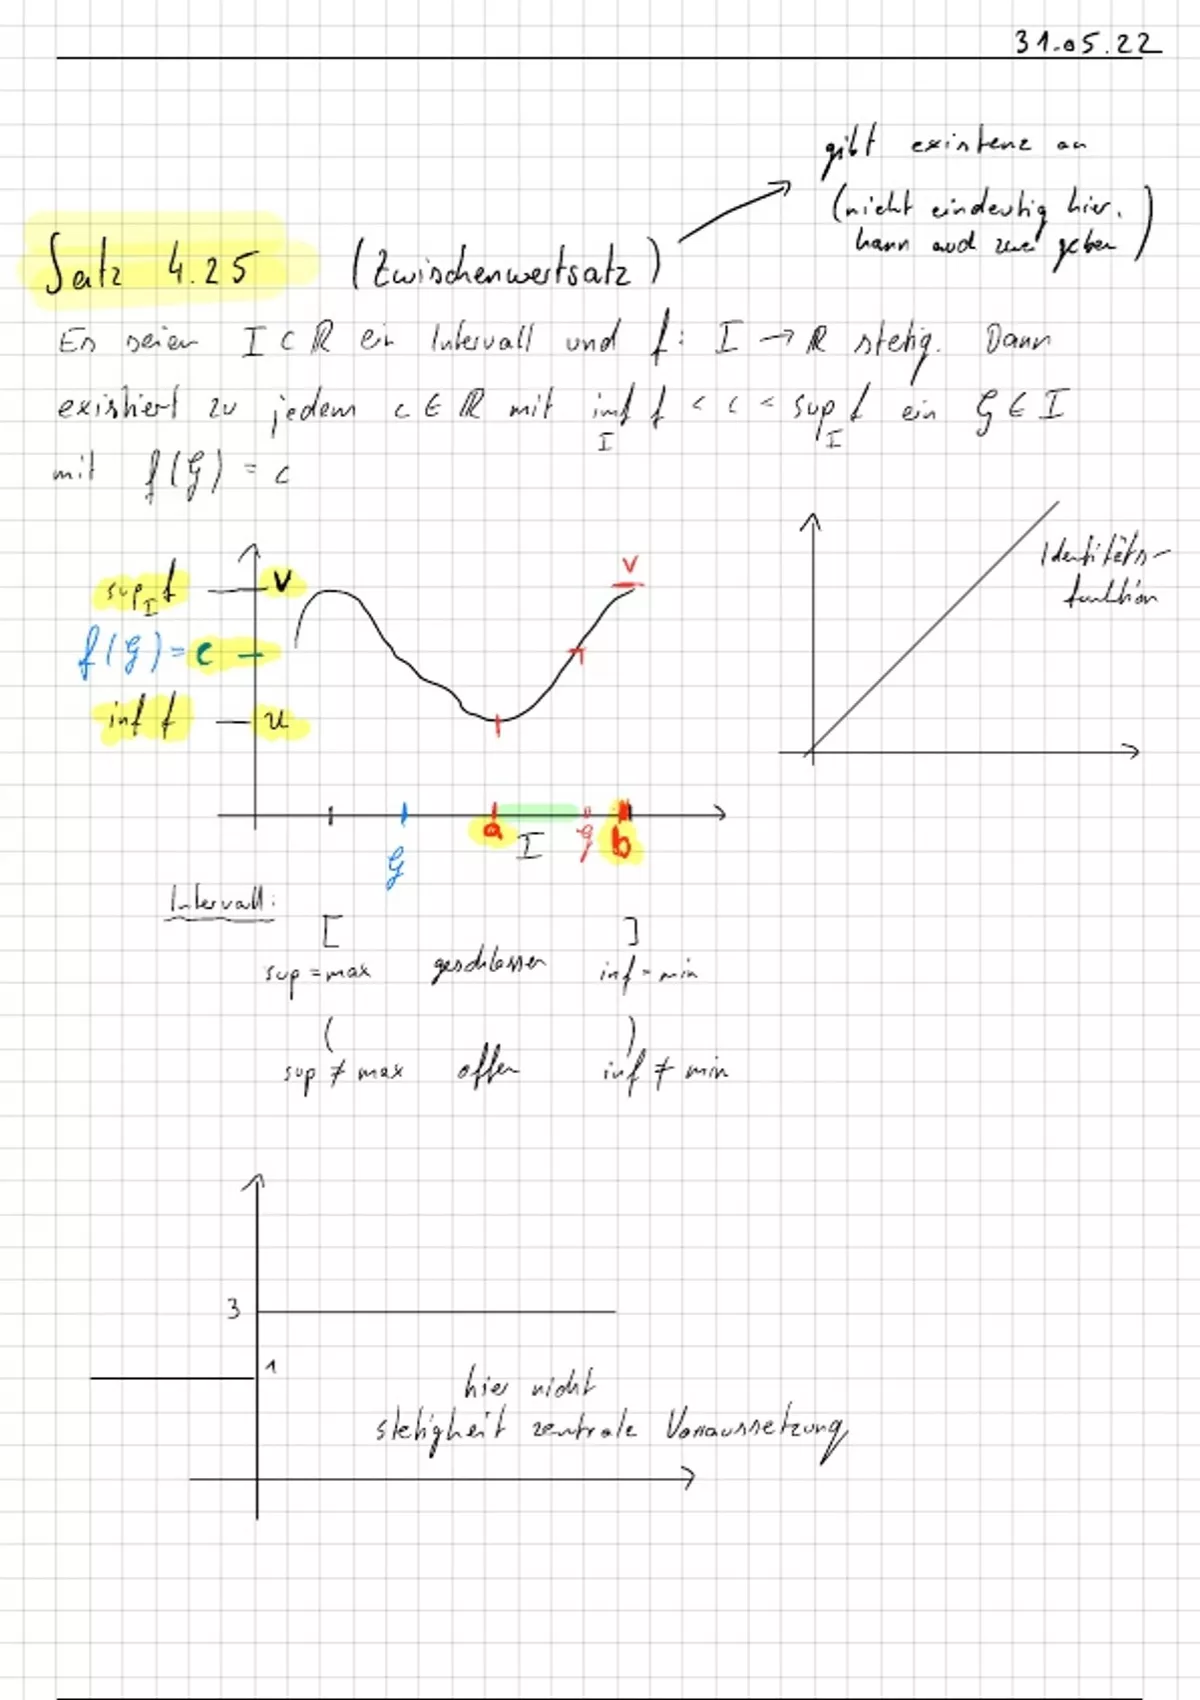 31.05.22
gibt existenz an
(nicht eindeutig hier,
kann auch zwei geben)
Satz 4.25 (Zwischenwertsatz)
Es seien I ⊂ ℝ ein Intervall und f: I → ℝ stetig. Dann
existiert zu jedem c ∈ ℝ mit inf f < c < sup f ein ξ ∈ I
I I
mit f(ξ) = c
sup_I f v v
Identitäts-
funktion
f(ξ) = c
inf f u
a I ξ b
ξ
Intervall:
[ ]
sup = max geschlossen inf = min
( )
sup ≠ max offen inf ≠ min
3
1
hier nicht
stetigkeit zentrale Vorraussetzung